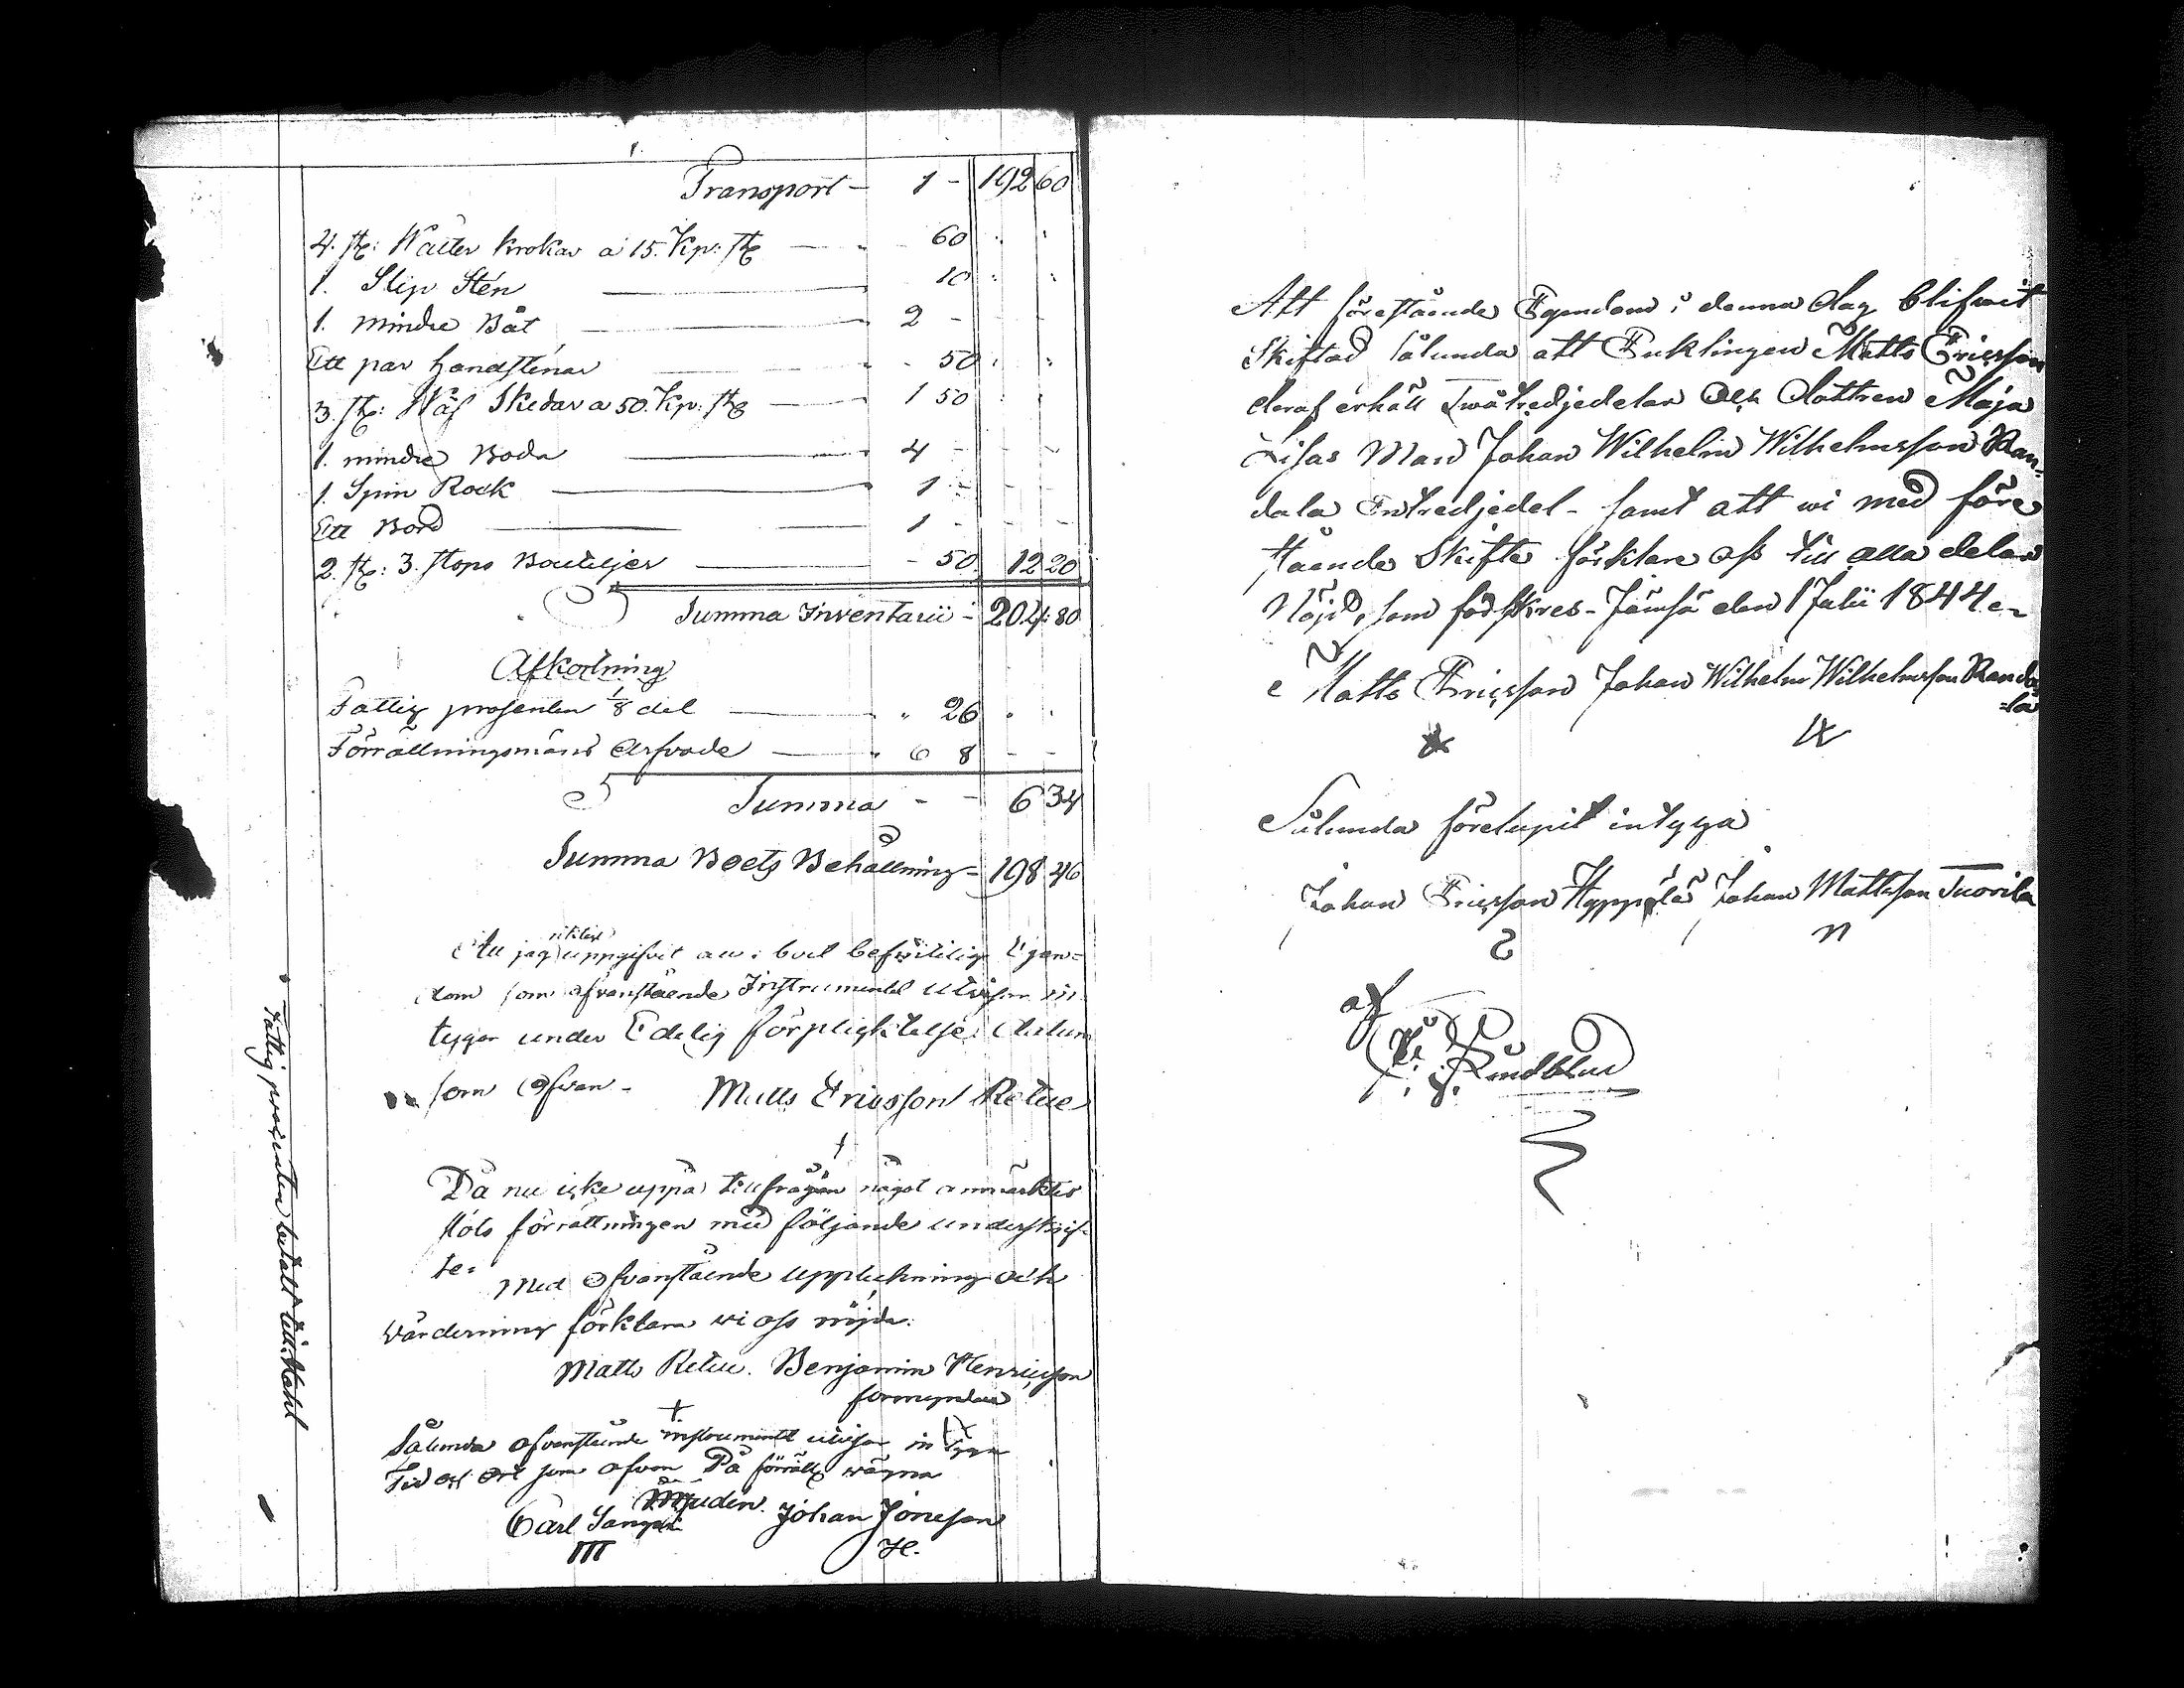 Transport - 1 - 192 60
4. st: Watter krokar a 15. Kp: st - 60
1. Slip Sten - 10
1. mindre Båt - 2 -
Ett par handstenar - 50
3. st: Wäf Skedar a 50. Kp: st - 1 50
1. mindre Boda - 4 -
1. Spin Rock - 1 -
Ett Bord - 1 -
2. st: 3. stops Bouteljer - 50 12 20
Summa Inventarii - 204: 80
Afkortning
Fattig prosenten 1/8 del - 26
Förrättningsmäns Arfvode - 6 8
Summa - - 6 34
Summa Boets Behållning = 198 46
Att jag uppgifvit all i boet befintlig Egen=
dom som ofvanstående Instrumentet utvisar in
tygar under Edelig förpligktelse. Datum
som Ofvan - Matts Ericsson Retue
Då nu icke uppå tillfrågan något anmärktes
slöts förrättningen med följande underskrif=
te=
Med Ofvanstående uppteckning och
Värdering förklara vi oss nöjda.
Matts Retue. Benjamin Henricsson
förmyndare
Sålunda ofvanstående instrumentet utvisar in tyga
Tid och Ort som ofvan På förrättg wägna
Carl Johan Jönsson
III H.
Fattig procenten betalt till
Att förestående Egendom i denna dag blifwit
Skiftad sålunda att Enklingen Matts Ericsson
deraf erhåll Twåtredjedelar Och dottren Maja
Lisas Man Johan Wilhelm Wilhelmsson Ran=
dala Entredjedel - samt att wi med före
stående Skifte förklare oss till alla delar
Nöjd, som försäkres - Jämsä den 1 Julii 1844. -
Matts Ericsson Johan Wilhelm Wilhelmsson Randa
=la
Sålunda förelupit intyga
Johan Ericsson Hyppölä Johan Mattsson Tuovila
af